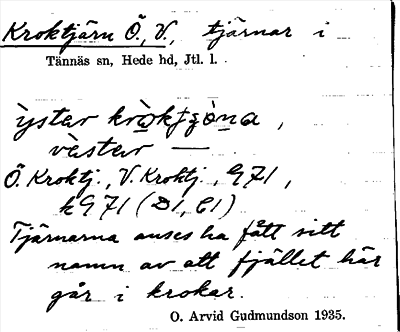 Kroktjärn Ö., V., tjärnar i
Tännäs sn, Hede hd, Jtl. l.
ỳster
vèster —
Ö. Kroktj., V. Kroktj., G71,
k G71 (D1, C1)
Tjärnarna anses ha fått sitt
namn av att fjället här
går i krokar.
O. Arvid Gudmundson 1935.